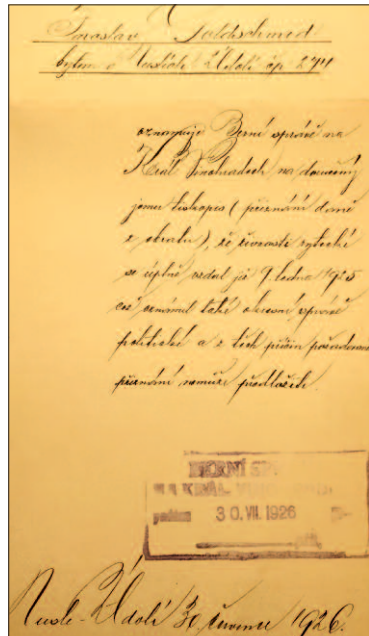 Jaroslav Goldschmied
bytem v Nuslích Údolí čp. 274
oznamuje Berní správě na
Král Vinohradech na doručený
jemu tiskopis (přiznání daně
z obratu), že živnosti rytecké
se úplně vzdal již 9. ledna 1925
což oznámil také okresní správě
politické a z těch příčin požadované
přiznání nemůže předložiti.
BERNÍ
KRÁL.
30. VII. 1926
Nusle-Údolí 30 července 1926.